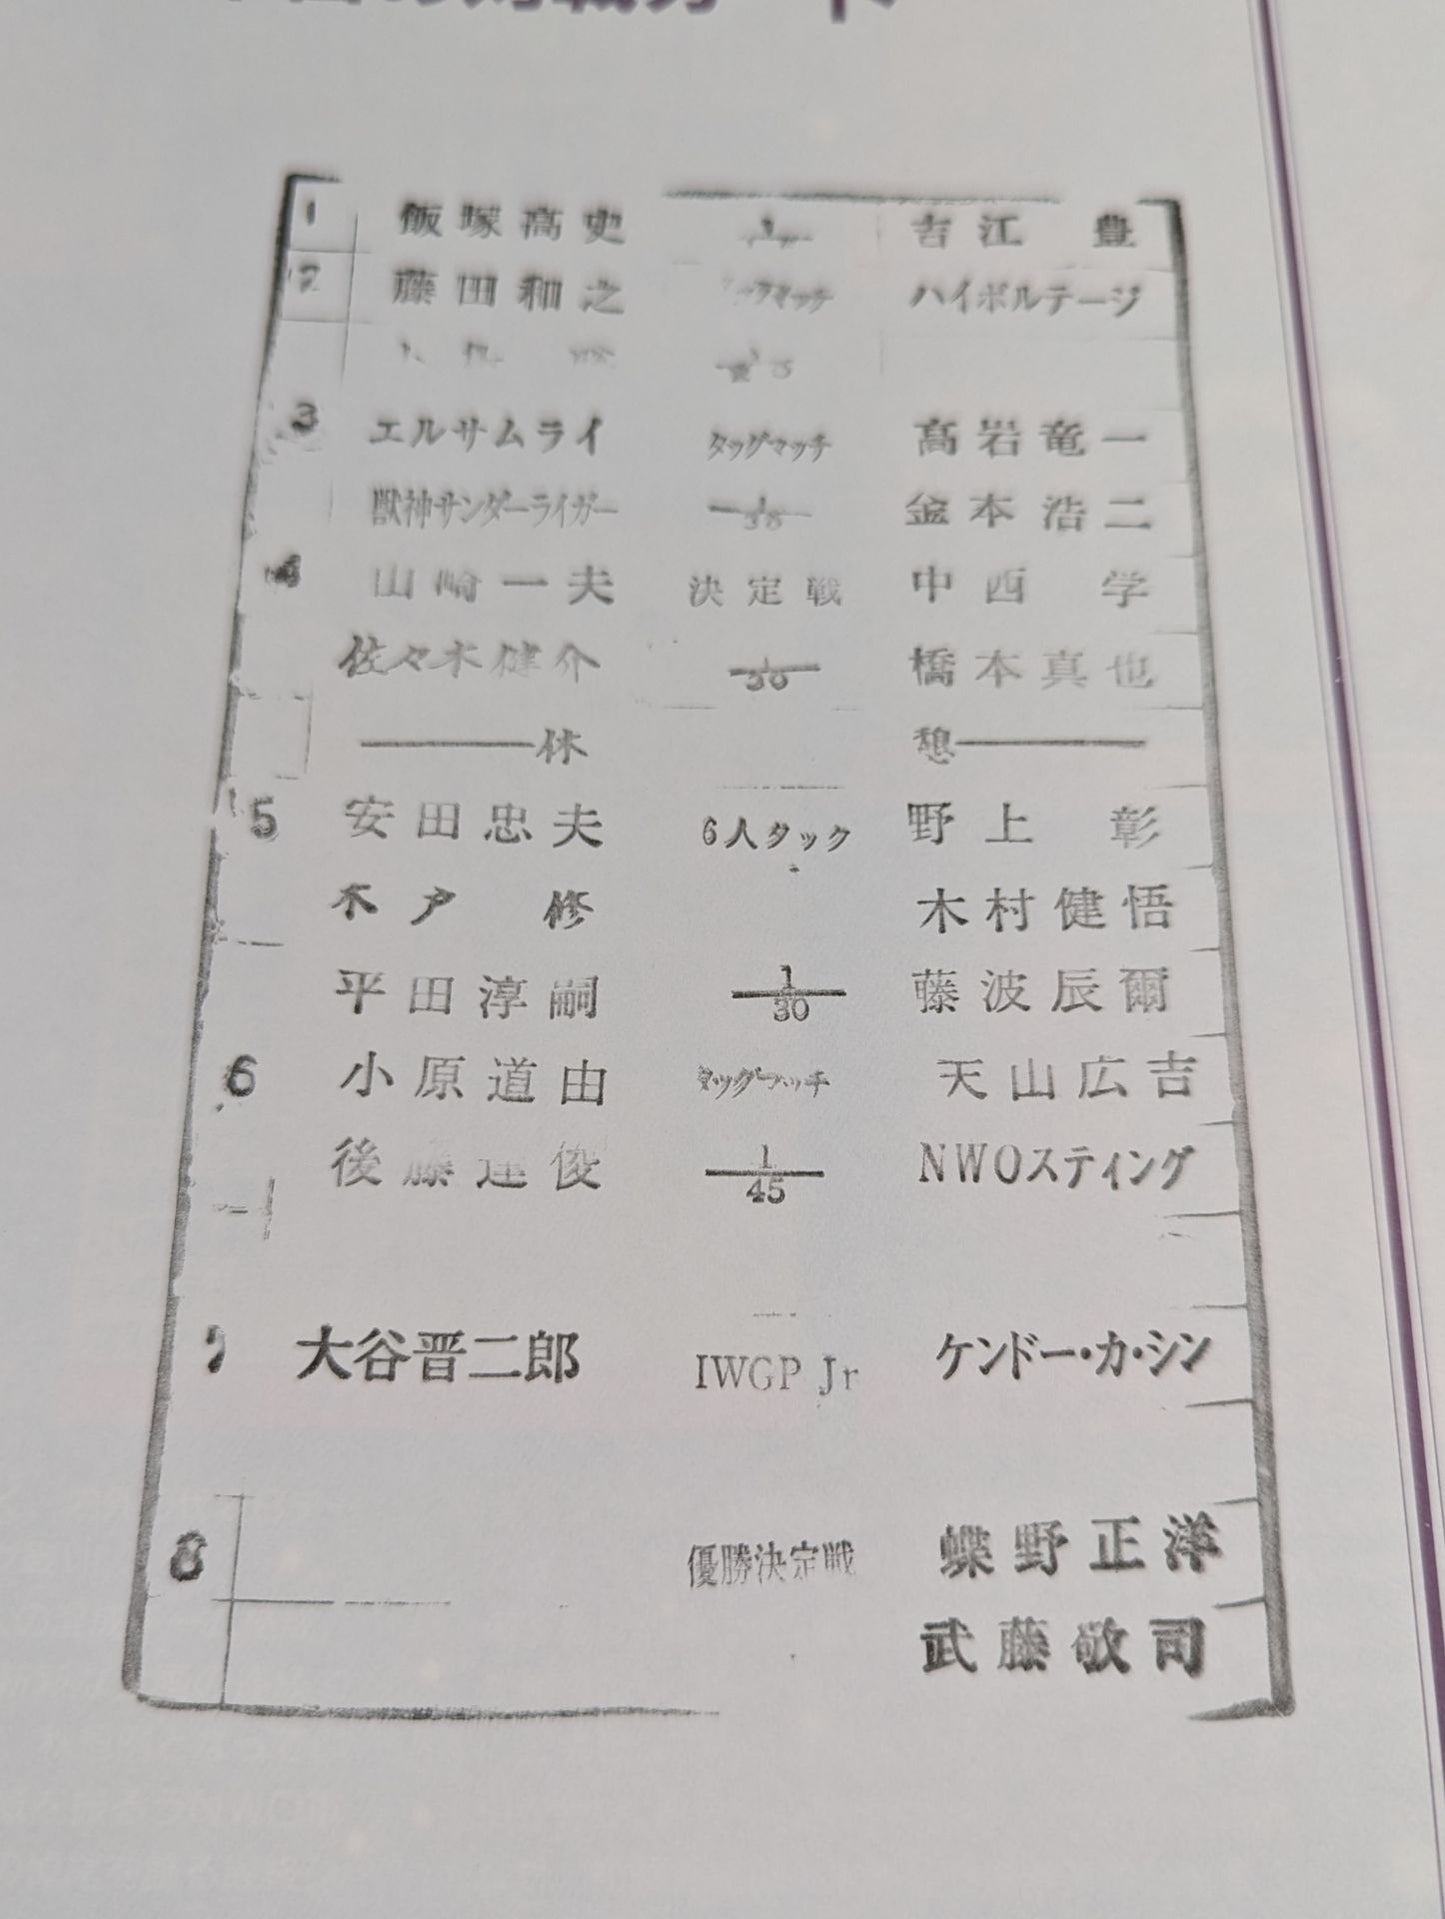 1 飯塚高史 吉江 豊
2 藤田和之 タッグマッチ ハイボルテージ
3 エルサムライ タッグマッチ 高岩竜一
獣神サンダーライガー 1/30 金本浩二
4 山崎一夫 決定戦 中西 学
佐々木健介 1/30 橋本真也
休 憩
5 安田忠夫 6人タック 野上 彰
木戸 修 木村健悟
平田淳嗣 1/30 藤波辰爾
6 小原道由 タッグマッチ 天山広吉
後藤達俊 1/45 NWOスティング
7 大谷晋二郎 IWGP Jr ケンドー・カ・シン
8 優勝決定戦 蝶野正洋
武藤敬司